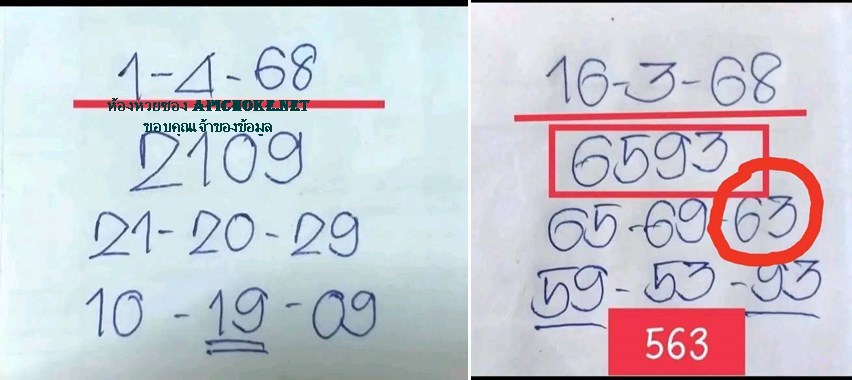 1-4-68
ห้องหวยซอง APICHOKE.NET
ขอบคุณเจ้าของข้อมูล
2109
21-20-29
10-19-09
16-3-68
6593
65-69-63
59-53-93
563